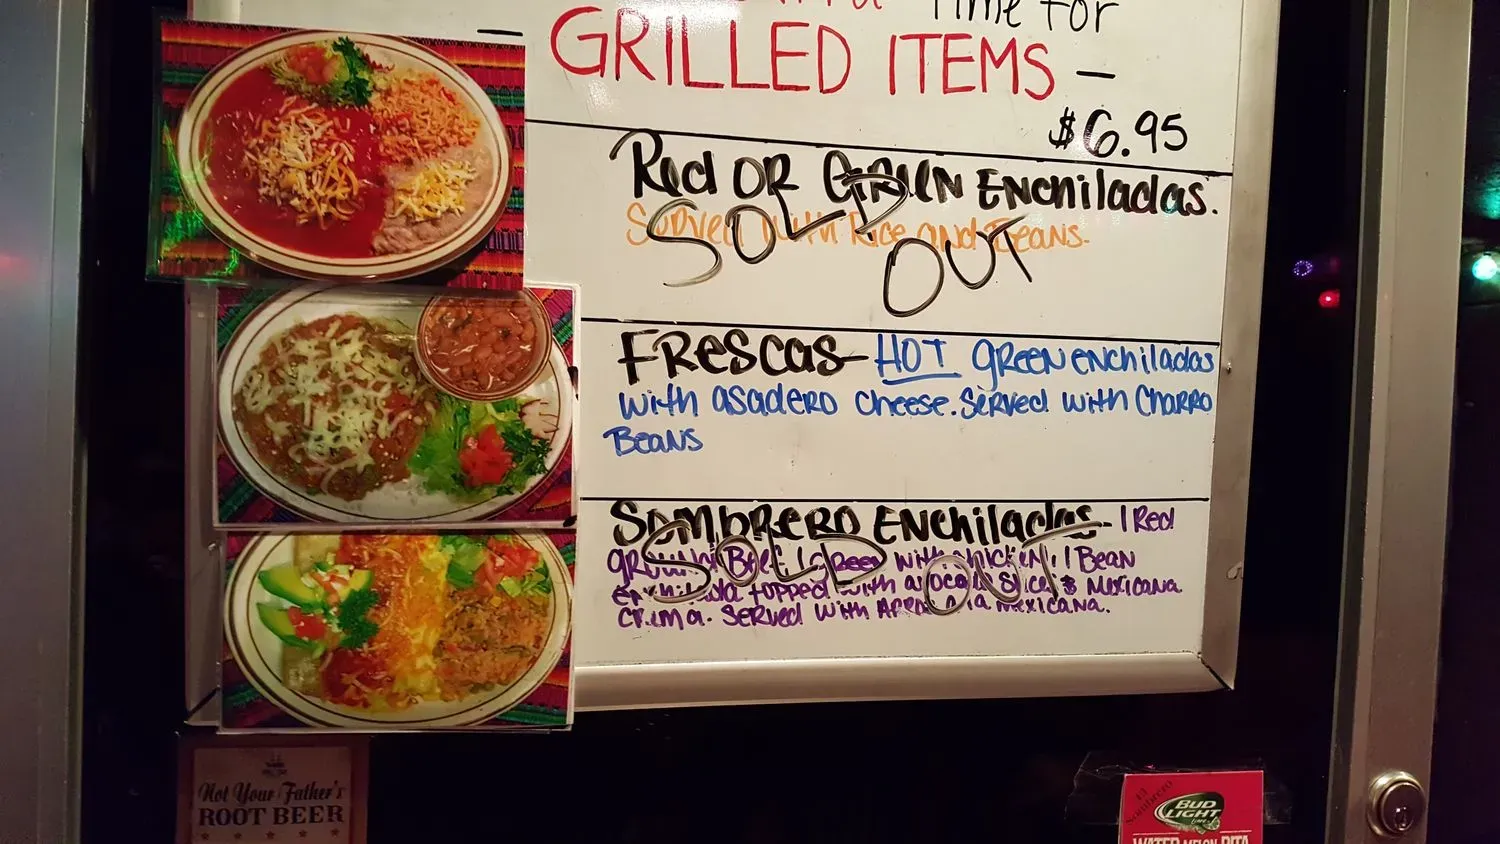 Time For
GRILLED ITEMS -
$6.95
Red OR GREEN ENCHiladas.
Served with Rice and Beans.
SOLD OUT
FRescas - HOT GREEN enchiladas
with asadero cheese. Served with Charro
Beans
Sombrero Enchiladas - 1 Red
ground Beef, 1 Green with chicken, 1 Bean
enchilada topped with avocado Slices & Mexicana
crema. Served with Arroz a la Mexicana.
SOLD OUT
Not Your Father's
ROOT BEER
El Sombrero
BUD
LIGHT
Lime
WATER MELON RITA